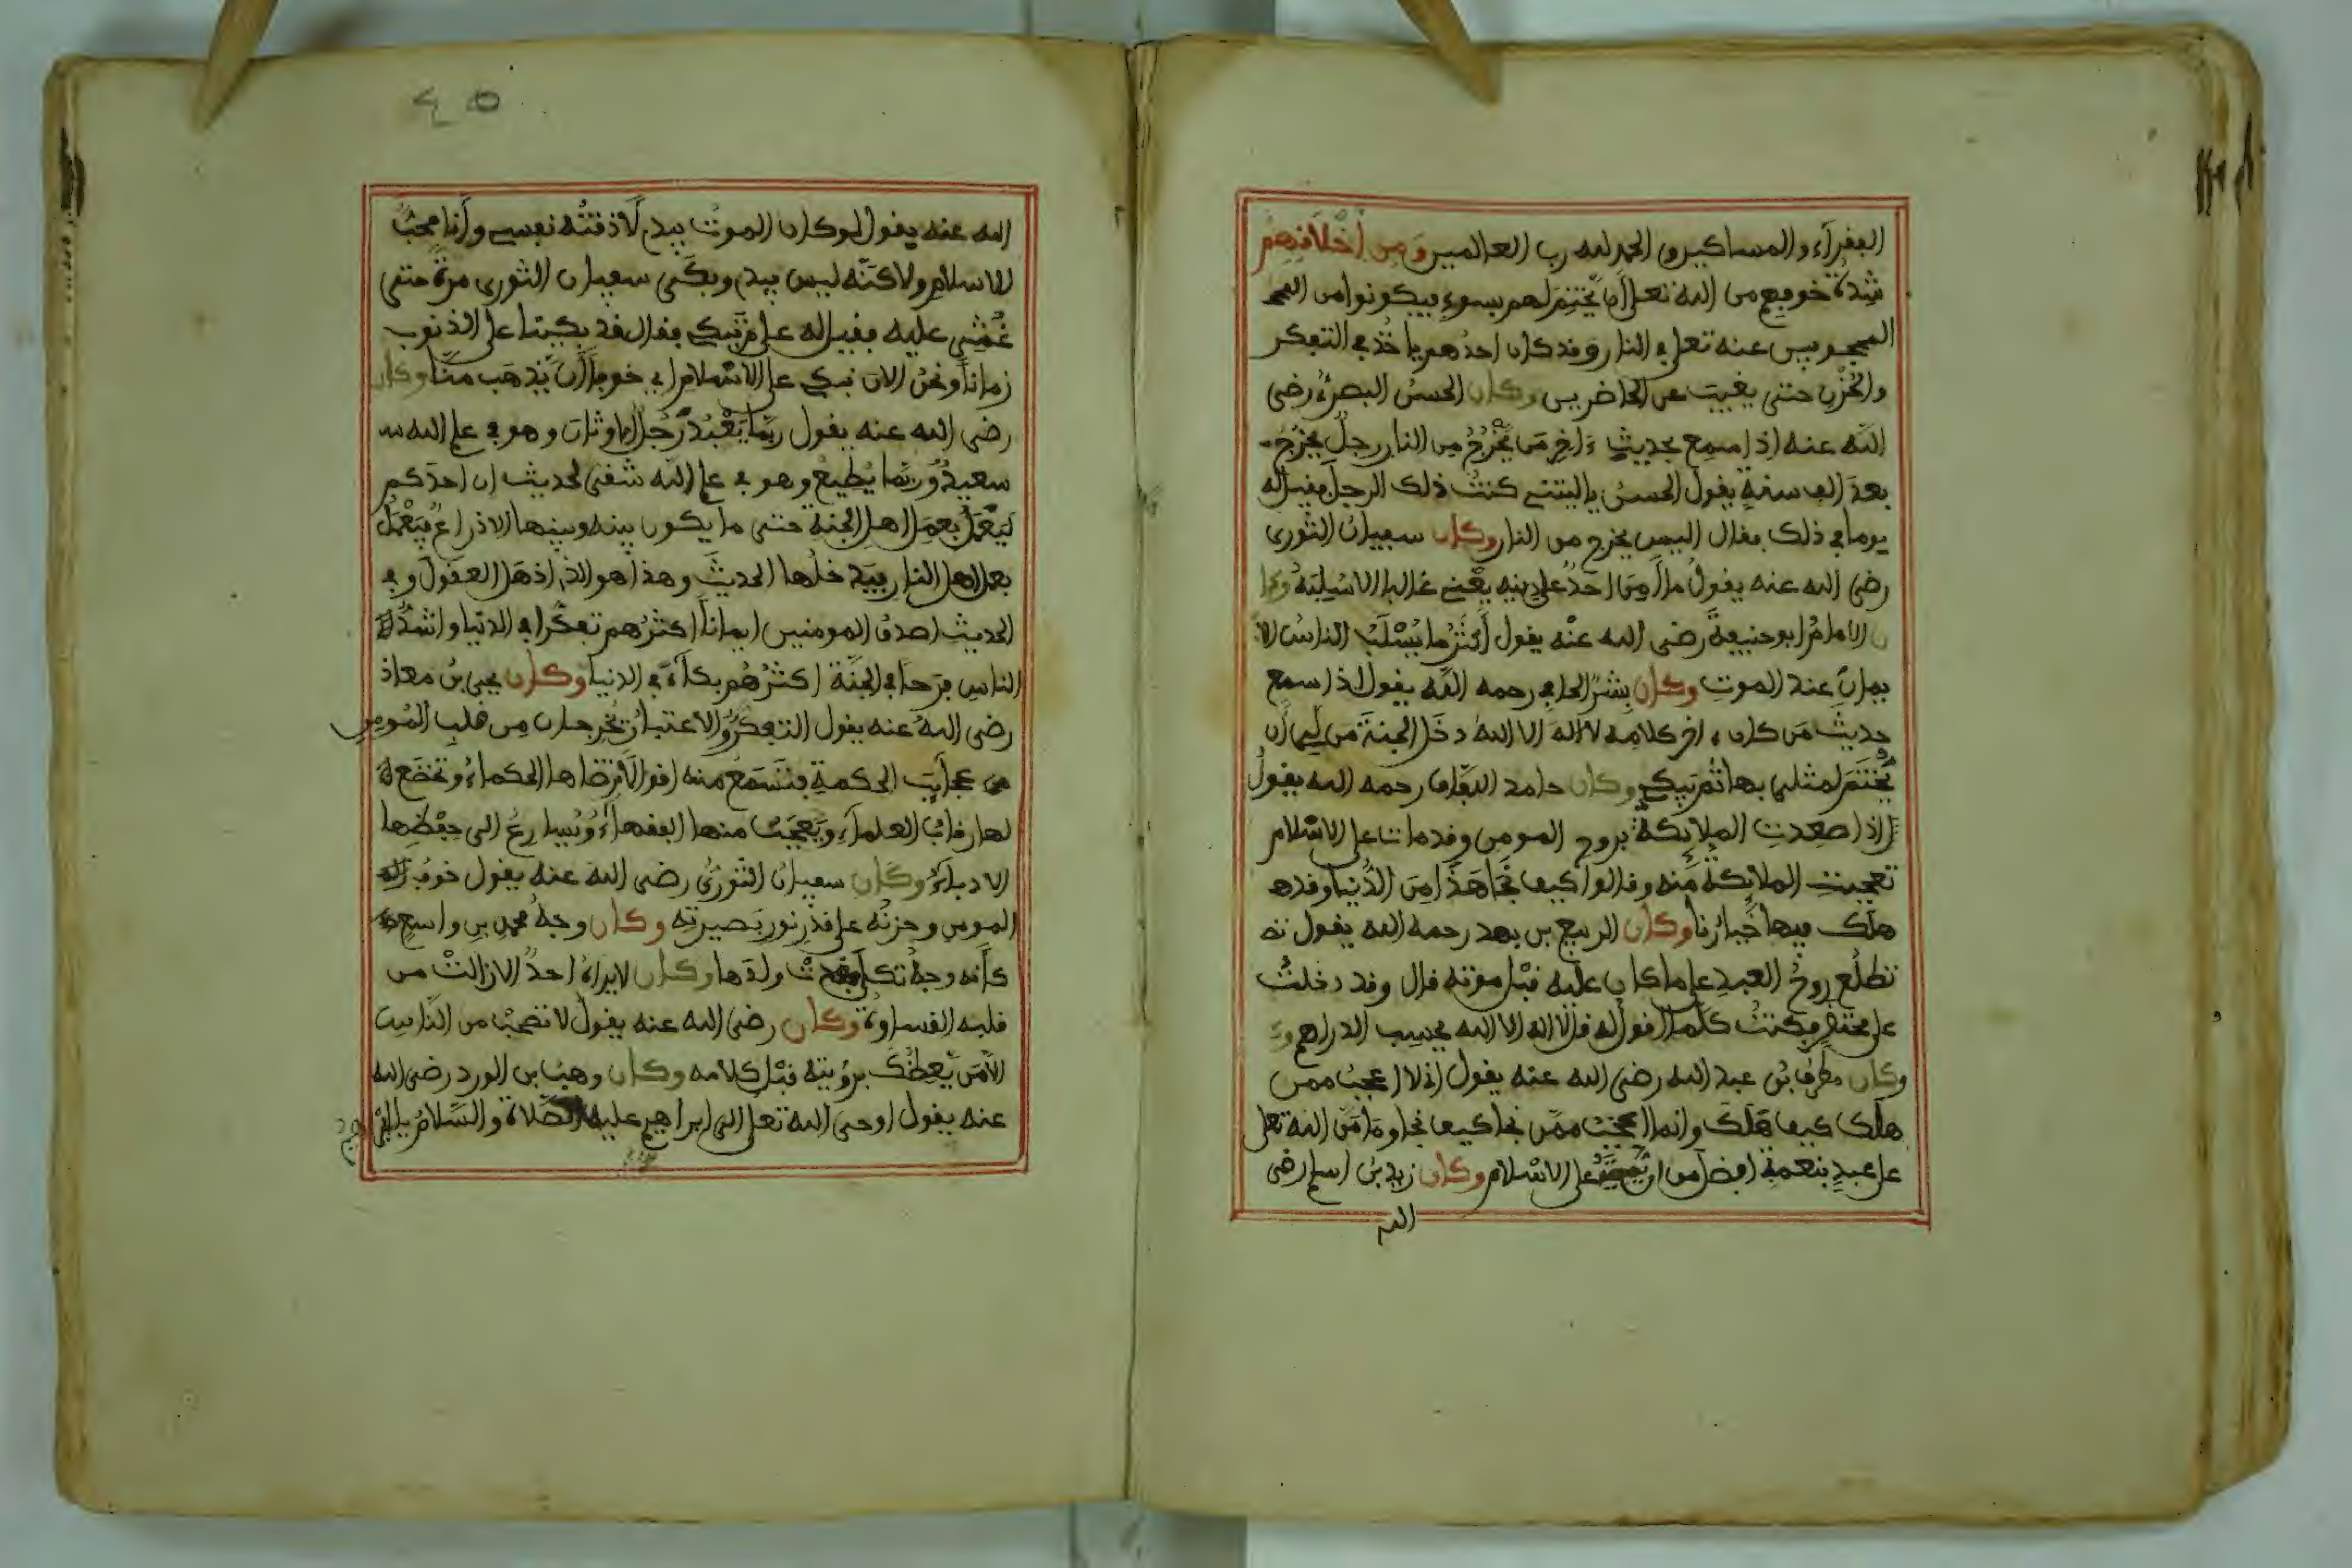 الفقرآء والمساكين والحمد لله رب العالمين ومن أخلافهم
شدة خوفهم من الله تعلى أن يختم لهم بسوء فيكونوا من المحـ
المحجوبين عنه تعلى في النار وقد كان احدهم ياخذ في التفكر
والحزن حتى يغيب عن الحاضرين وكان الحسن البصري رضى
الله عنه إذا سمع بحديث ءاخر من يخرج من النار رجل يخرج
بعد الف سنة يقول الحسن ياليتنى كنت ذلك الرجل فقيل له
يوما في ذلك فقال اليس يخرج من النار وكان سفيان الثورى
رضى الله عنه يقول ما أمن احد على دينه يعنى غالبا الا سلبه وكا
ن الامام ابو حنيفة رضى الله عنه يقول أكثر ما يسلب الناس الا
يمان عند الموت وكان بشر الحافي رحمه الله يقول إذا سمع
حديث من كان ءاخر كلامه لا اله الا الله دخل الجنة من لى أن
يختم لمثلى بها ثم يبكي وكان حامد اللفاف رحمه الله يقول
إذا صعدت الملائكة بروح المومن وقد مات على الاسلام
تعجبت الملائكة منه وقالوا كيف نجا هذا من الدنيا وقد هـ
هلك فيها خيارنا وكان الربيع بن رحمه الله يقول
تطلع روح العبد على ما كان عليه قبل موته قال وقد دخلت
على محتضر فكنت كلما اقول له قل لا اله الا الله يحسب الدراهم و
وكان مطرف بن عبد الله رضى الله عنه يقول إذ لا اعجب ممن
هلك كيف هلك وانما اعجب ممن نجا كيف نجا وما من الله تعلى
على عبد بنعمة افضل من ان على الاسلام وكان زيد بن اسلم رضى
الله
٤٥
الله عنه يقول لو كان الموت بيدي لأذقته نفسى وأنا محب
للاسلام ولاكنه ليس بيدي وبكى سفيان الثورى مرة حتى
غشي عليه فقيل له على م تبكي فقال قد بكينا على الذنوب
زمانا ونحن الان نبكي على الاسلام اي خوفا أن يذهب منا وكان
رضى الله عنه يقول ربما يعبد رجل الاوثان وهو في علم الله سـ
سعيد وربما يطيع وهو في علم الله شقى لحديث ان احدكم
ليعمل بعمل اهل الجنة حتى ما يكون بينه وبينها الا ذراع فيعمل
بعمل اهل النار فيدخلها الحديث وهذا هو الذي اذهل العقول وفي
الحديث اصدق المومنين ايمانا اكثرهم تفكرا في الدنيا واشد
الناس فرحا في الجنة اكثرهم بكاء في الدنيا وكان يحيى بن معاذ
رضى الله عنه يقول التفكر والاعتبار يخرجان من قلب المومن
من عجايب الحكمة فتسمع منه اقوالا ترضاها الحكماء وتخضع له
لها رقاب العلماء وتعجب منها الفقهاء ويسارع الى حفظها
الادباء وكان سفيان الثوري رضى الله عنه يقول خوف
المومن وحزنه على قدر نور بصيرته وكان وجه محمد بن واسع
كأنه وجه ثكلى فقدت ولدها وكان لا يراه احد الا زالت من
قلبه القساوة وكان رضى الله عنه يقول لا تصحب من الناس
الا من يعظك برؤيته قبل كلامه وكان وهب بن الورد رضى الله
عنه يقول اوحى الله تعلى الى ابراهيم عليه الصلاة والسلام يا